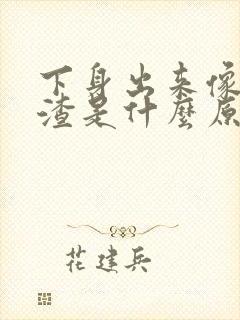 下身出来像
渣是什麼原
花建兵